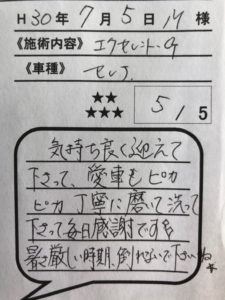 H30年7月5日 M 様
《施術内容》エクセレント・G
《車種》セレナ
★★
★★★
5/5
気持ち良く迎えて
下さって、愛車もピカ
ピカ丁寧に磨いて洗って
下さって毎日感謝です
最厳しい時期、倒れないで下さいね